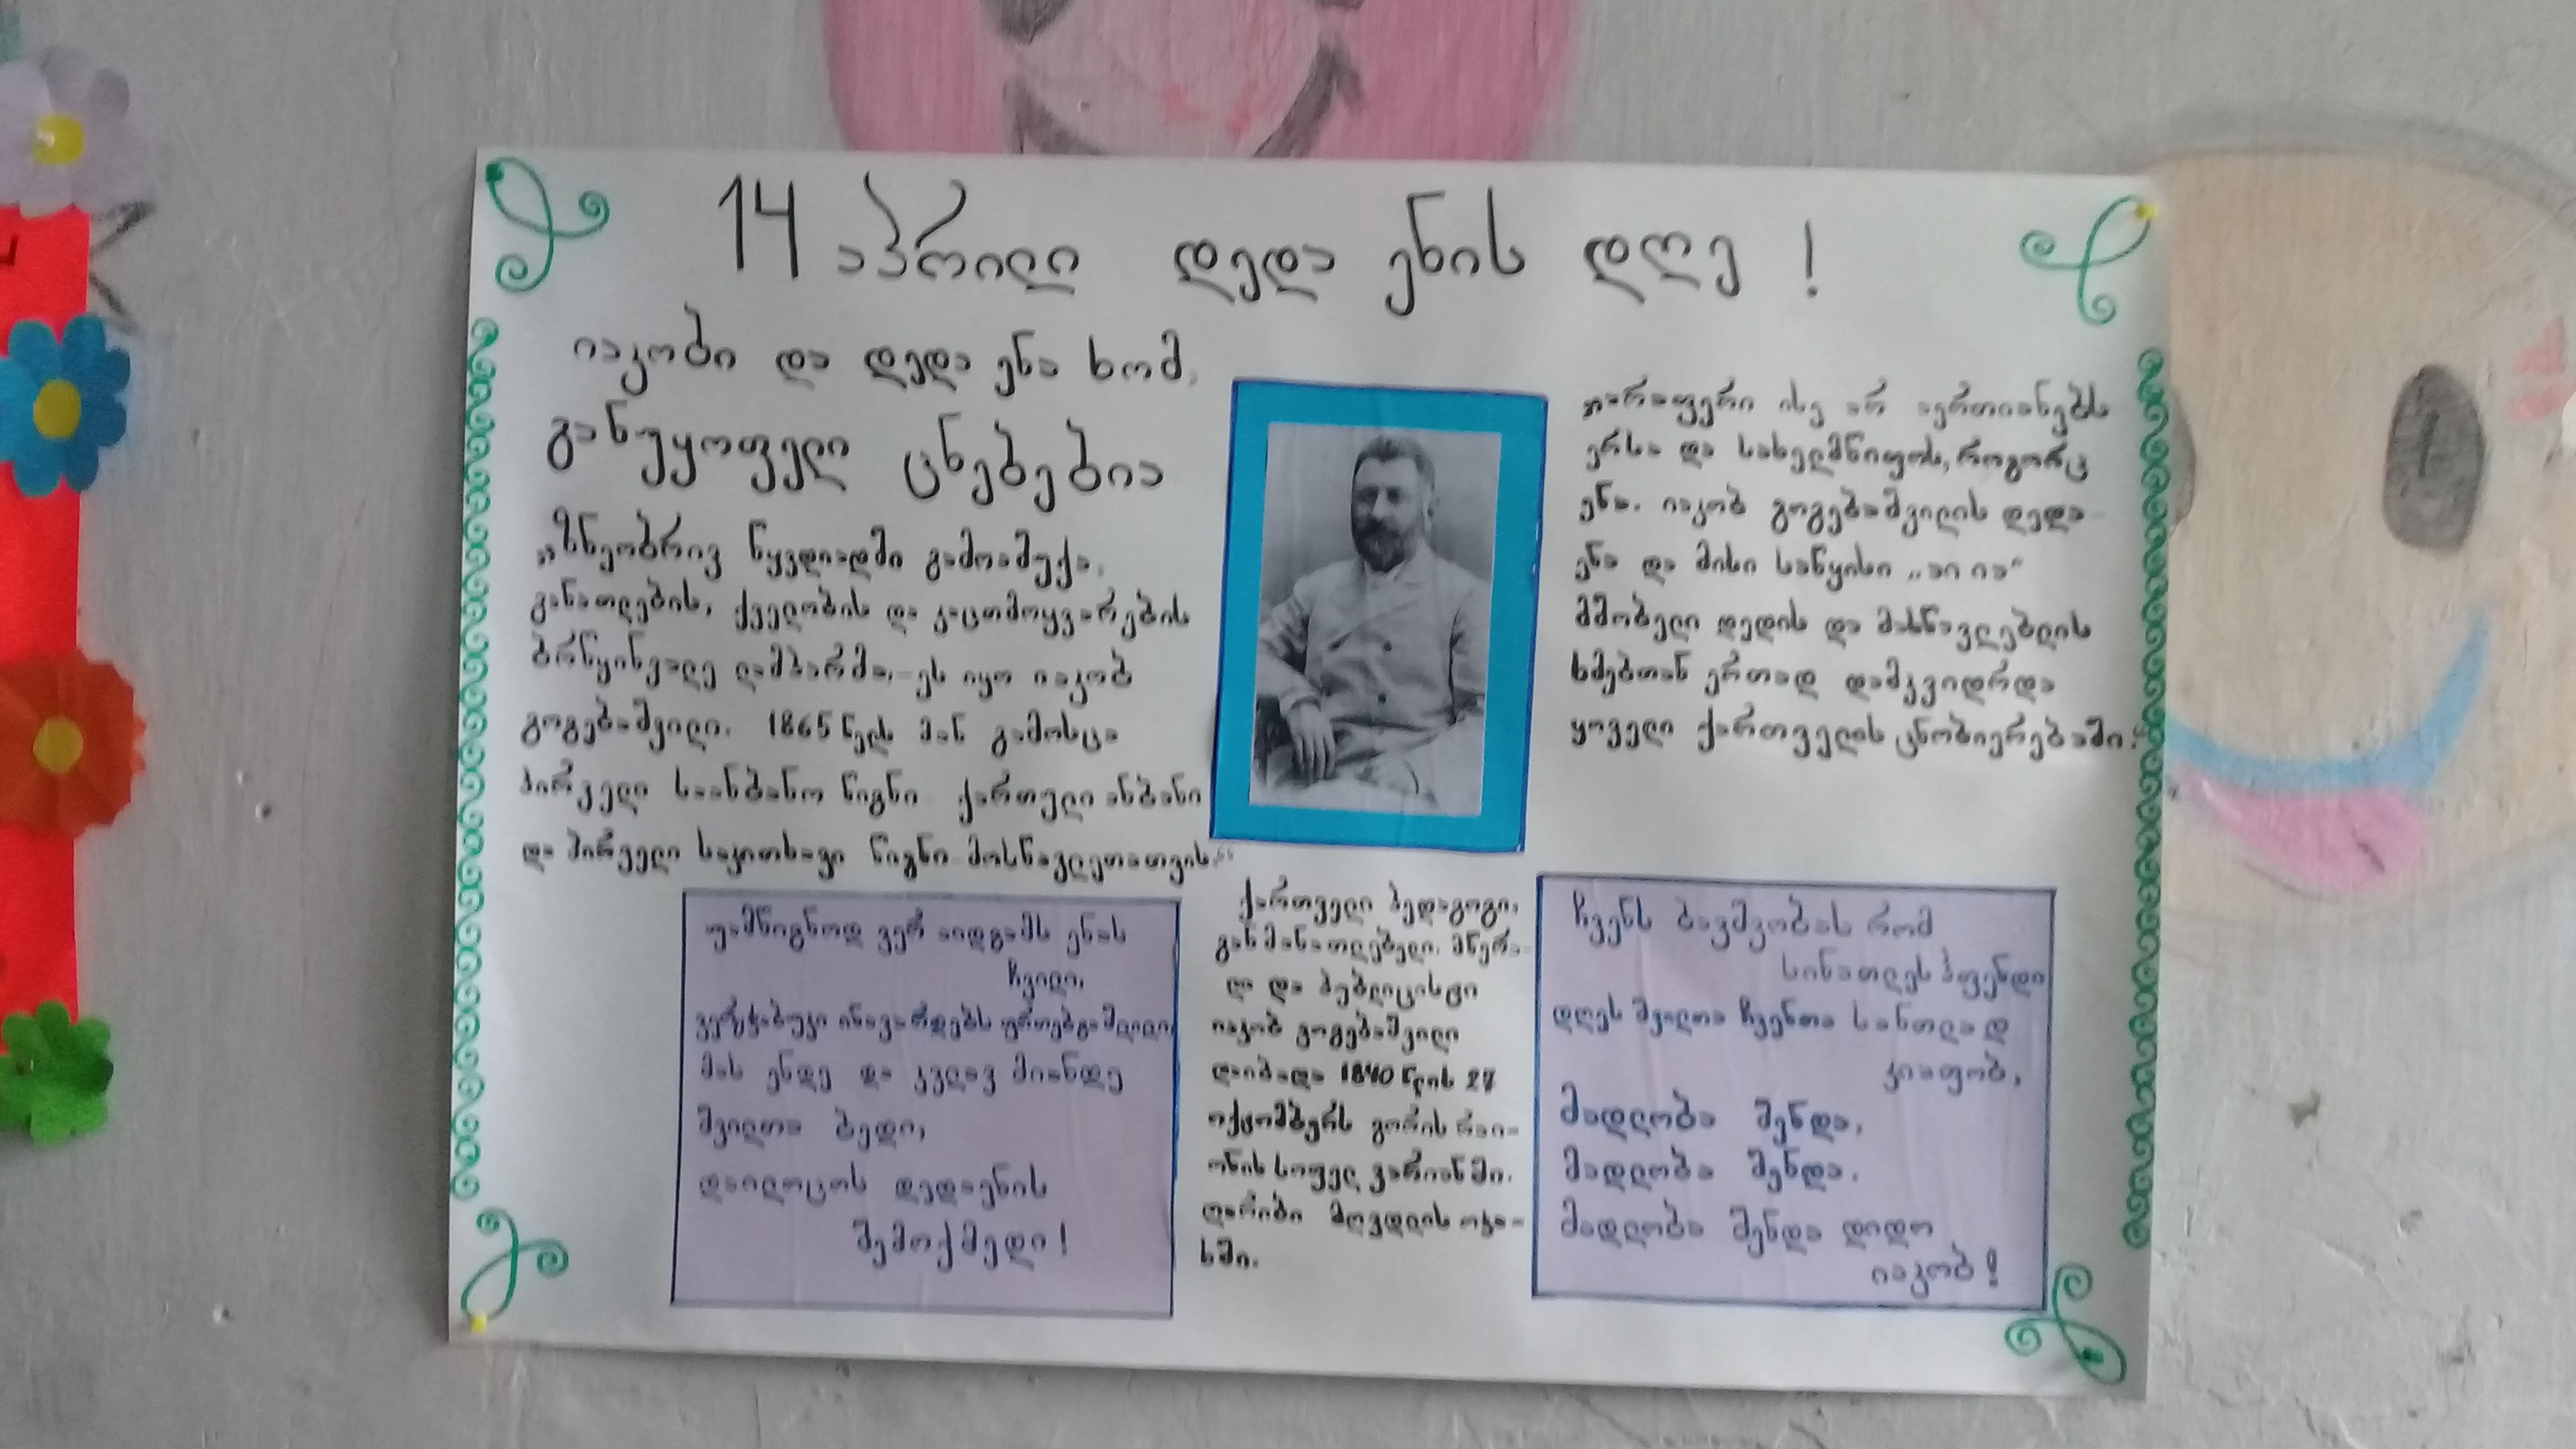 14 აპრილი დედა ენის დღე !
იაკობი და დედა ენა ხომ,
განუყოფელი ცნებებია
„ზნეობრივ წყვდიადში გამოაშუქა,
განათლების, ქველობის და კაცთმოყვარების
ბრწყინვალე ლამპარმა,-ეს იყო იაკობ
გოგებაშვილი. 1865 წელს მან გამოსცა
პირველი საანბანო წიგნი ქართული ანბანი
და პირველი საკითხავი წიგნი მოსწავლეთათვის.“
არაფერი ისე არ აერთიანებს
ერსა და სახელმწიფოს, როგორც
ენა. იაკობ გოგებაშვილის დედა-
ენა და მისი საწყისი „აი ია“
მშობელი დედის და მასწავლებლის
ხმებთან ერთად დამკვიდრდა
ყოველი ქართველის ცნობიერებაში.
უამწიგნოდ ვერ აიდგამს ენას
ჩვილი,
ვერც ჭაბუკი ინავარდებს ფრთებგაშლილი
მას ენდე და კვლავ მიანდე
შვილთა ბედი,
დაილოცოს დედაენის
შემოქმედი!
ქართველი პედაგოგი,
განმანათლებელი, მწერა-
ლი და პუბლიცისტი
იაკობ გოგებაშვილი
დაიბადა 1840 წლის 27
ოქტომბერს გორის რაი-
ონის სოფელ ვარიანში.
ღარიბი მღვდლის ოჯა-
ხში.
ჩვენს ბავშვობას რომ
სინათლეს ჰფენდი
დღეს შვილთა ჩვენთა სანთლად
კიაფობ,
მადლობა შენდა,
მადლობა შენდა,
მადლობა შენდა დიდო
იაკობ!